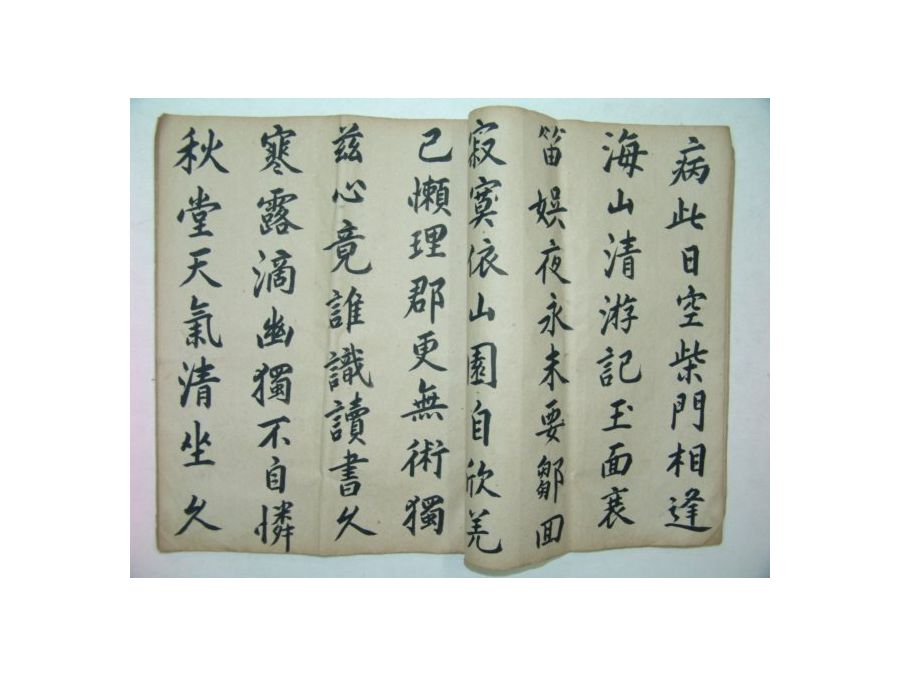 病此日空柴門相逢
海山清游記玉面裹
笛娯夜永未要鄒回
寂寞依山園自欣羌
己懶理郡更無術獨
茲心竟誰識讀書久
寒露滴幽獨不自憐
秋堂天氣清坐久